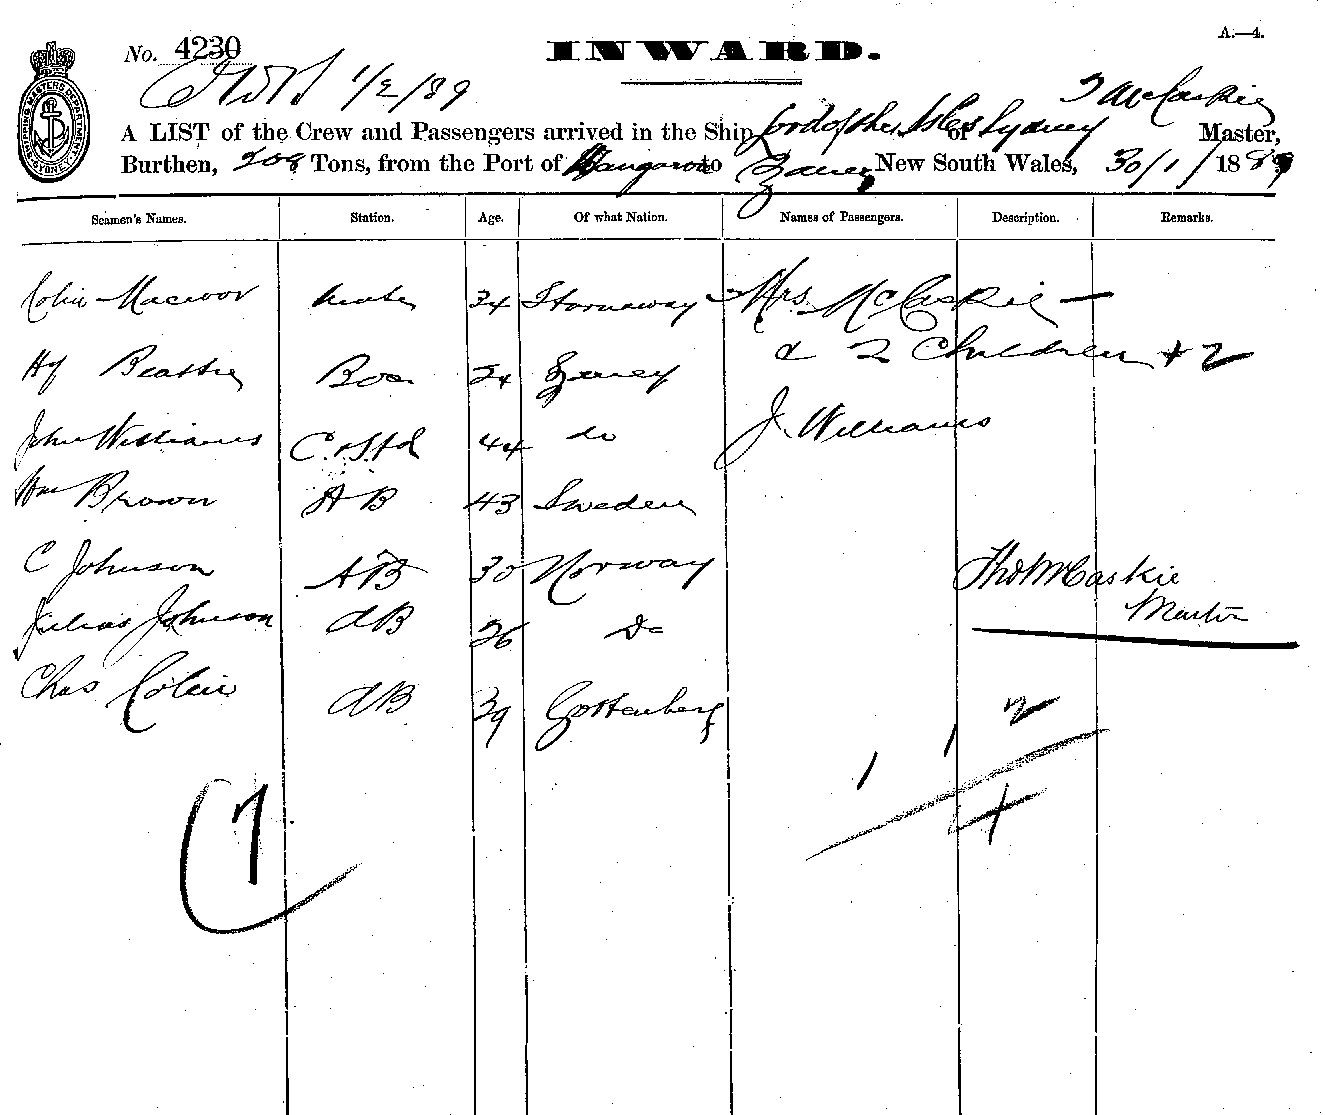 A.—4.
No. 4230
INWARD.
1/2/89
T McCaskie
A LIST of the Crew and Passengers arrived in the Ship Lord of the Isles of Sydney Master,
Burthen, 209 Tons, from the Port of to New South Wales, 30/1/1889
SHIPPING MASTERS DEPARTMENT SYDNEY
Seamen's Names. Station. Age. Of what Nation. Names of Passengers. Description. Remarks.
Colin Macivor Mate 34 Stornaway Mrs. McCaskie —
& 2 Children + 2
Hy Beattie Bos 24 Sydney
John Williams C & Std 44 do J. Williams
Wm Brown AB 43 Sweden
C Johnson AB 30 Norway Thos McCaskie
Master
Julius Johnson AB 26 Do
Chas Colin AB 39 Gottenberg
2
1 1
4
7